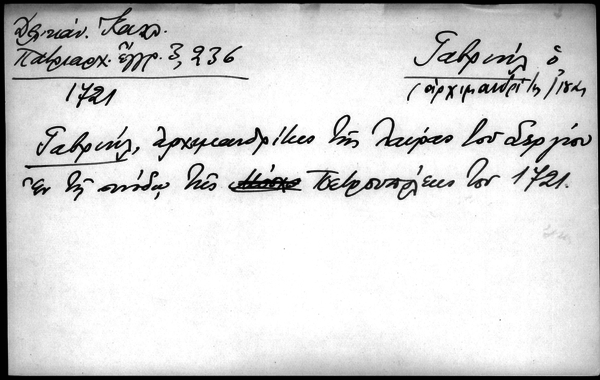 Δελικάν. Καλ.
Πατριαρχ. ἔγγρ. 3, 236
1721
Γαβριήλ ὁ
(ἀρχιμανδρίτης)
Γαβριήλ, ἀρχιμανδρίτης τῆς Λαύρας τοῦ Σεργίου
ἐν τῇ συνόδῳ τῆς Πετρουπόλεως τοῦ 1721.